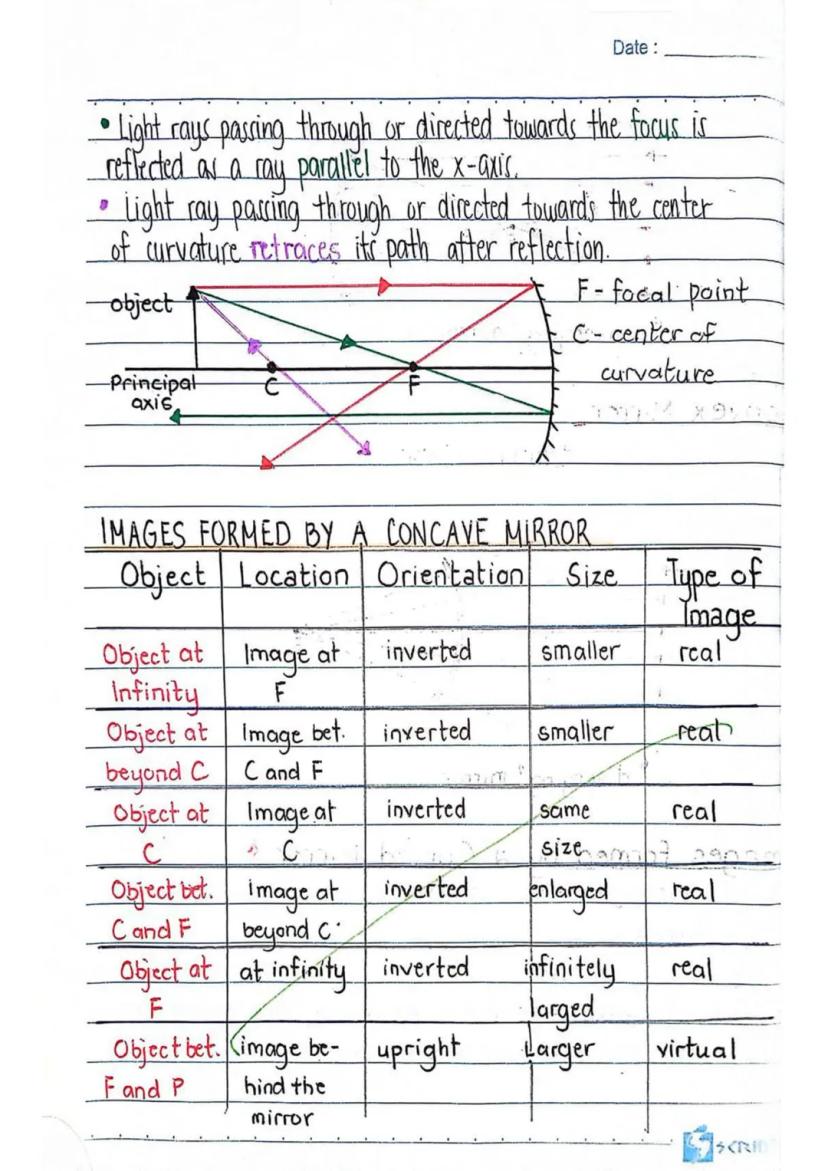 Date :
• Light rays passing through or directed towards the focus is
reflected as a ray parallel to the x-axis.
• Light ray passing through or directed towards the center
of curvature retraces its path after reflection.
object
F - focal point
C - center of
curvature
Principal
axis
C
F
IMAGES FORMED BY A CONCAVE MIRROR
Object Location Orientation Size Type of
Image
Object at Image at inverted smaller real
Infinity F
Object at Image bet. inverted smaller real
beyond C C and F
Object at Image at inverted same real
C C size
Object bet. image at inverted enlarged real
C and F beyond C.
Object at at infinity inverted infinitely real
F larged
Object bet. image be- upright Larger virtual
F and P hind the
mirror